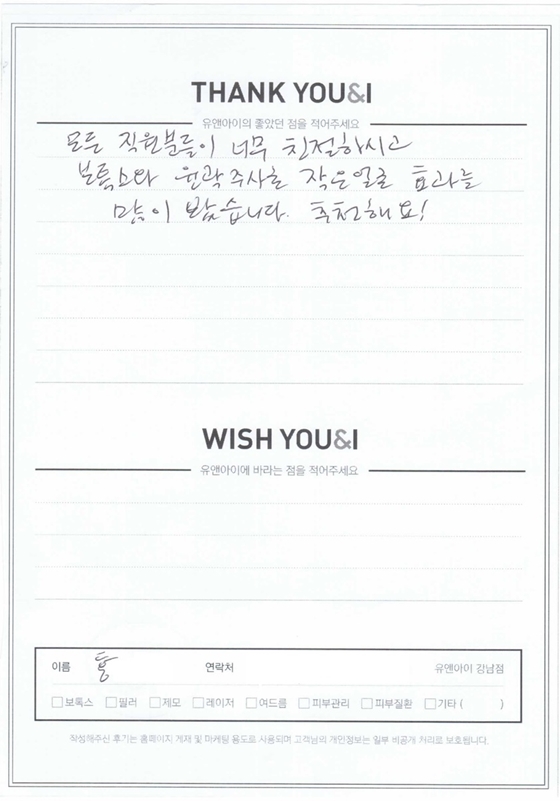 THANK YOU&I
유앤아이의 좋았던 점을 적어주세요
모든 직원분들이 너무 친절하시고
보톡스와 윤곽주사로 작은얼굴 효과를
많이 봤습니다. 추천해요!
WISH YOU&I
유앤아이에 바라는 점을 적어주세요
이름 연락처 유앤아이 강남점
보톡스 필러 제모 레이저 여드름 피부관리 피부질환 기타 ( )
작성해주신 후기는 홈페이지 게재 및 마케팅 용도로 사용되며 고객님의 개인정보는 일부 비공개 처리로 보호됩니다.